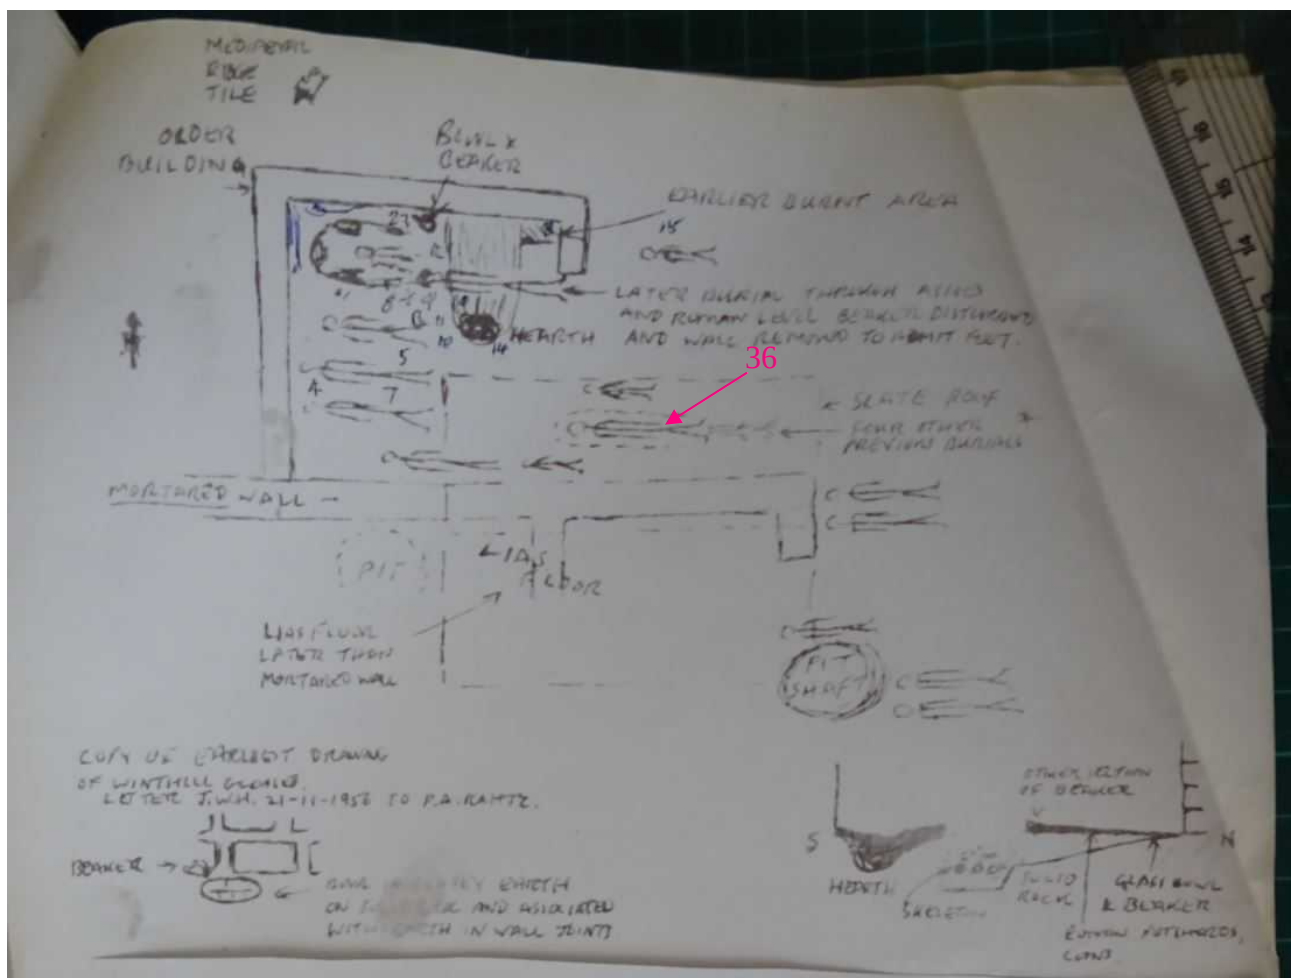 MEDIAEVAL
RIDGE
TILE
OLDER
BUILDING
BOWL &
BEAKER
EARLIER BURNT AREA
15
23
LATER BURIAL THROUGH ASHES
AND ROMAN LEVEL BEAKER DISTURBED
AND WALL REMOVED TO ADMIT FEET.
HEARTH
14
11
10
8
9
36
5
4
7
SLATE ROOF
FOUR OTHER
PREVIOUS BURIALS
MORTARED WALL
PIT
LIAS
FLOOR
LIAS FLOOR
LATER THAN
MORTARED WALL
PIT
SHAFT
COPY OF EARLIEST DRAWING
OF WINTHILL
LETTER J.W.H. 21-11-1956 TO P.A. RAHTZ.
BEAKER
EARTH
ON AND ASSOCIATED
WITH EARTH IN WALL JOINTS
S
HEARTH
SKELETON
SOLID
ROCK
OTHER
OF BEAKER
N
GLASS BOWL
& BEAKER
ROMAN POTSHERDS,
COINS